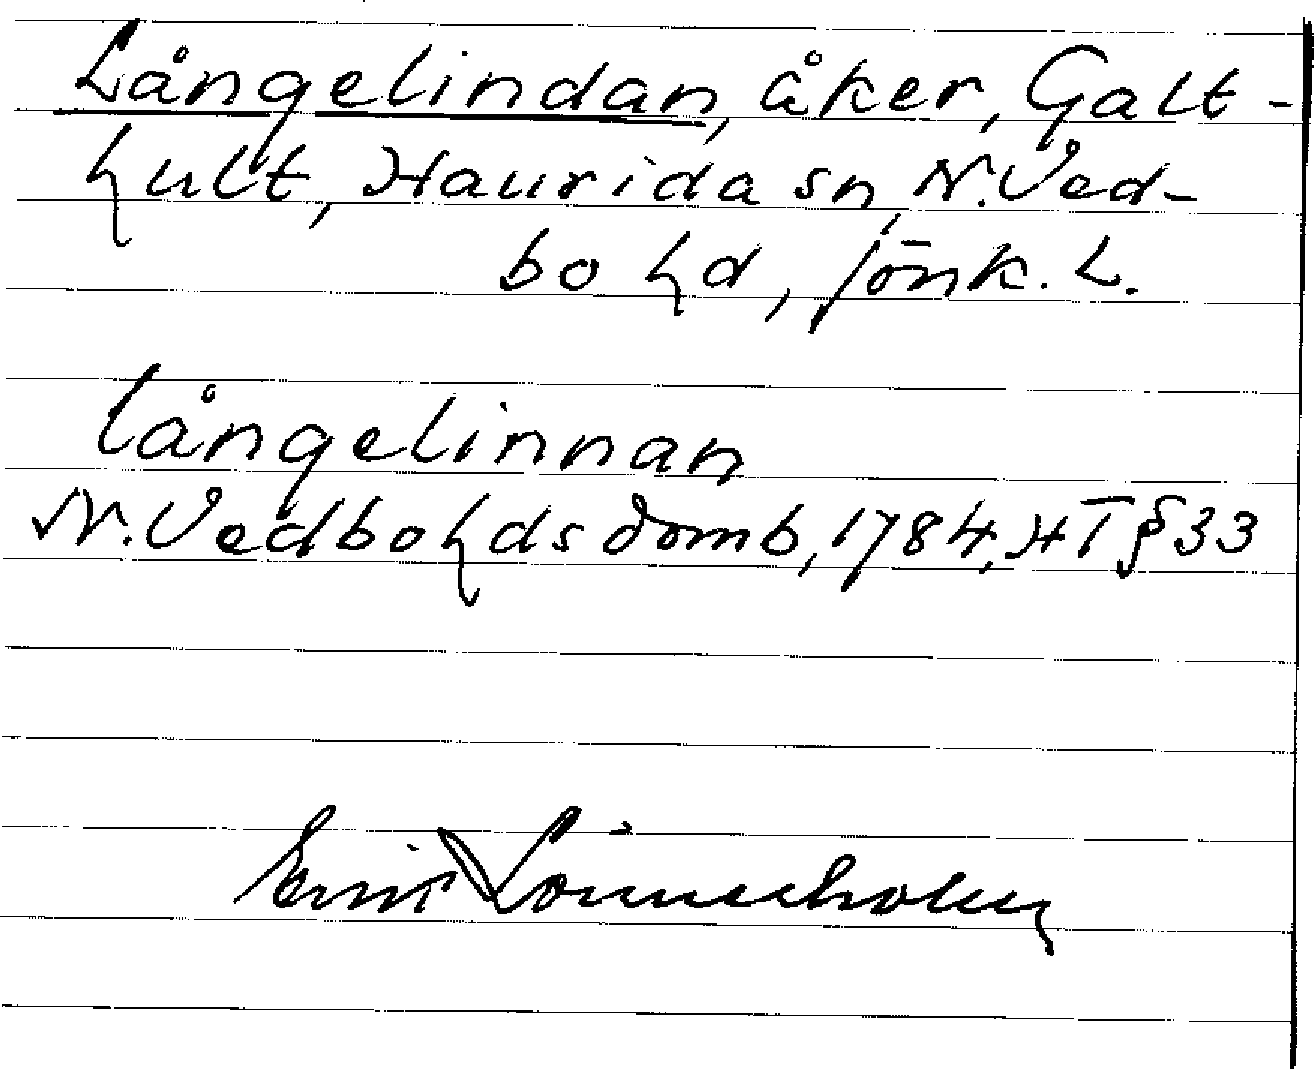 Långelindan, åker, Galt-
hult, Haurida sn, N. Ved-
bo hd, Jönk. L.
långelinnan
N. Vedbo hds domb, 1784, HT § 33